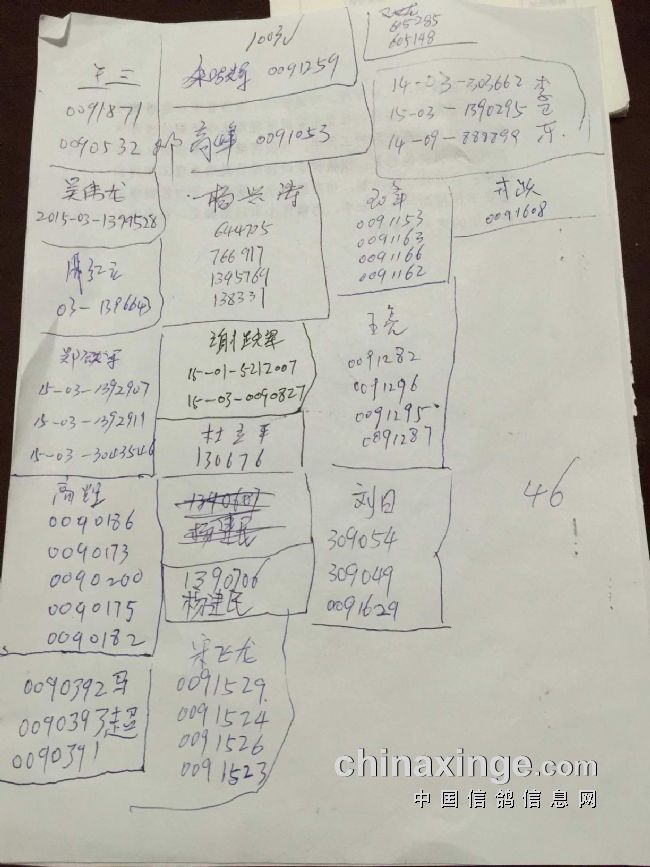 1003
605285
605148
王三
0091871
0090532
0091259
高峰 0091053
14-03-303662 李
15-03-1390295 立
14-09-888899 东
吴伟龙
2015-03-1399528
杨兴涛
644705
766917
1395769
138331
0091153
0091163
0091166
0091162
0091608
03-1396643
郑跃军
15-03-1392907
15-03-1392911
15-03-3043546
谢跃军
15-01-5212007
15-03-0090827
杜立平
130676
王亮
0091282
0091296
0091295
0091287
高辉
0090186
0090173
0090200
0090175
0090182
杨建民
1390706
杨建民
刘日
309054
309049
0091629
46
0090392 马
0090393 超
0090391
宋飞龙
0091529
0091524
0091526
0091523
chinaxinge.com
中国信鸽信息网